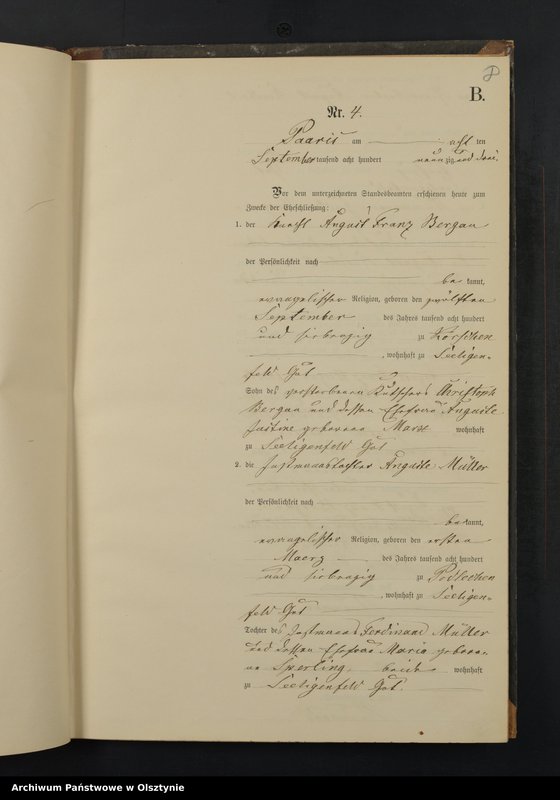 B.
Nr. 4.
Paaris am acht ten
September tausend acht hundert neunzig und drei.
Vor dem unterzeichneten Standesbeamten erschienen heute zum
Zwecke der Eheschließung:
1. der Knecht August Franz Bergau
der Persönlichkeit nach
be kannt,
evangelischer Religion, geboren den zwölften
September des Jahres tausend acht hundert
und siebenzig zu Korschen
, wohnhaft zu Seeligen-
feld Gut
Sohn des verstorbenen Kutschers Christoph
Bergau und dessen Ehefrau Auguste
Justine geborene wohnhaft
zu Seeligenfeld Gut
2. die Instmannstochter Auguste Müller
der Persönlichkeit nach
be kannt,
evangelischer Religion, geboren den ersten
Maerz des Jahres tausend acht hundert
und siebenzig zu Podlechen
, wohnhaft zu Seeligen-
feld Gut
Tochter des Instmanns Ferdinand Müller
und dessen Ehefrau Maria gebore-
ne Sperling, beide wohnhaft
zu Seeligenfeld Gut.
Archiwum Państwowe w Olsztynie